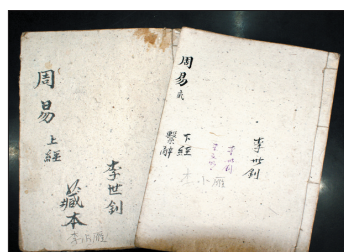 周易
上經
李世釗
藏本
周易
下經
繫辭
李世釗
李世釗